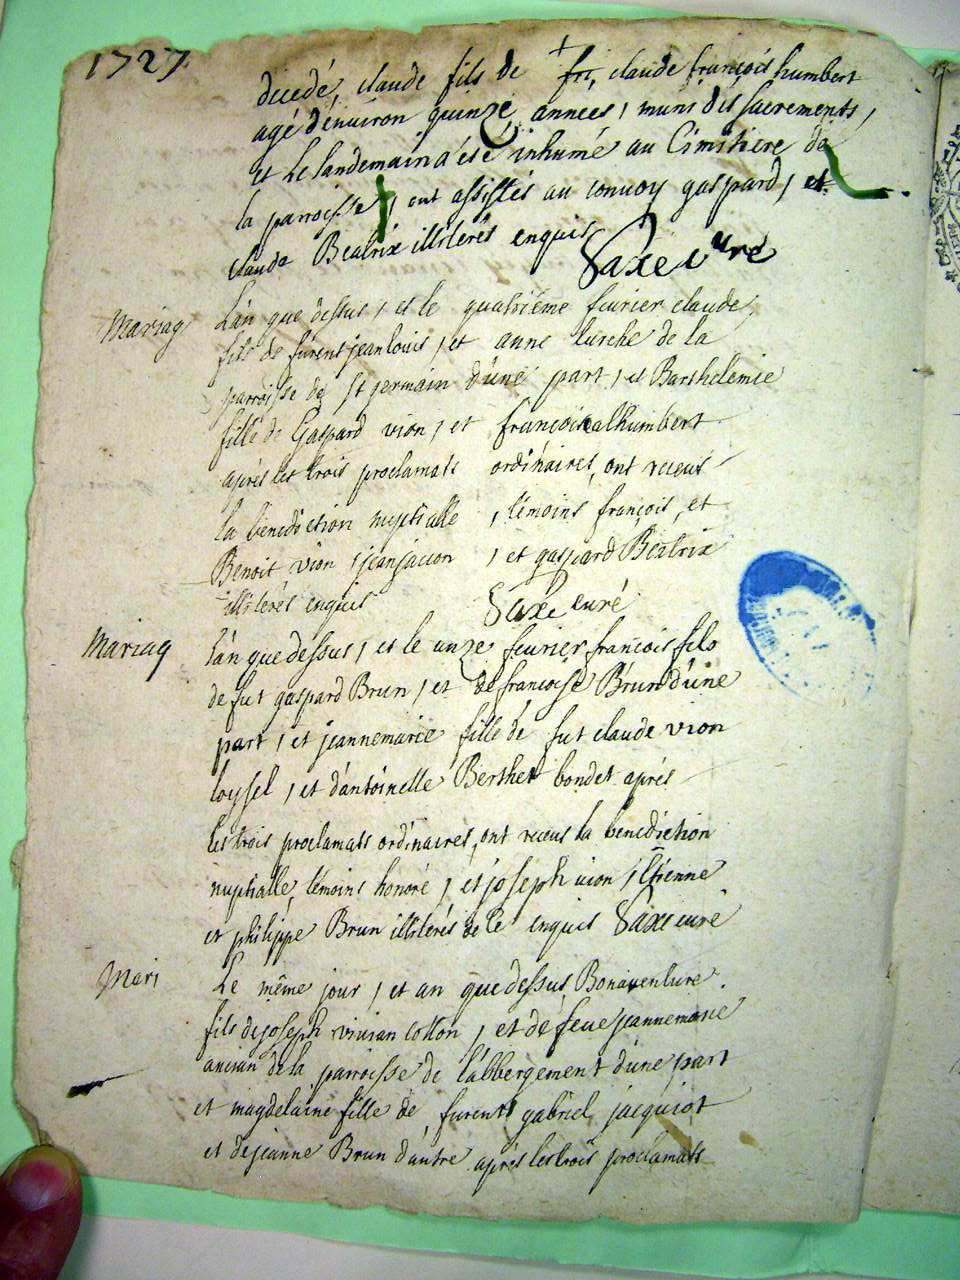 1727
decedé, claude fils de + fr, claude françois humbert
agé d'environ quinze années, muni des sacrements,
et le landemain a été inhumé au Cimitière de
la parroisse, ont assistés au convoy gaspard, et
claude Béatrix illiterés enquis Saxe curé
Mariag
L'an que dessus, et le quatrième fevrier claude,
fils de furent jean louis, et anne lurche de la
parroisse de St germain d'une part, et Barthelemie
fille de Gaspard vion, et françoise alhumbert
après les trois proclamats ordinaires, ont receus
la bénédiction nuptialle, témoins françois, et
Benoit vion, jean jacson, et gaspard Béatrix
illiterés enquis Saxe curé
Mariag
L'an que dessus, et le unze fevrier françois fils
de fut gaspard Brun, et de françoise Brun d'une
part, et jeanne marie fille de fut claude vion
loysel, et d'antoinelle Berthet bondet après
les trois proclamats ordinaires, ont receus la benediction
nuptialle, témoins honoré, et joseph vion, Etienne
et philippe Brun illiterés de ce enquis Saxe curé
Mari
Le même jour, et an que dessus Bonaventure
fils de joseph vivian cotton, et de feue jeanne marie
ancian de la parroisse de l'abbergement d'une part
et magdelaine fille de furent gabriel jacquiot
et de jeanne Brun d'autre après les trois proclamats